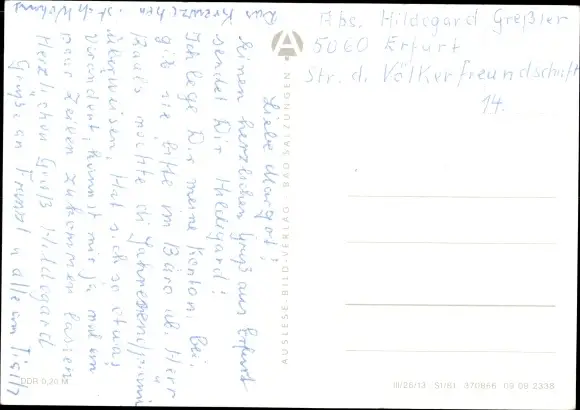 Das Kreuzchen
Liebe Margot!
Einen herzlichen Gruß aus Erfurt
sendet Dir Hildegard!
Ich lege Dir meine Konton. bei.
gib sie bitte im Büro ab. Herr
möchte die Jahresendprämie
überweisen. Hat sich so etwas
verändert, kannst mir ja mal ein
paar Zeilen zukommen lassen
Herzlichen Gruß Hildegard
Grüße an u alle am Tisch
Abs. Hildegard Greßler
5060 Erfurt
Str. d. Völkerfreundschaft
14.
AUSLESE-BILD-VERLAG BAD SALZUNGEN
DDR 0,20 M
III/26/13 S1/81 370866 09 09 2338